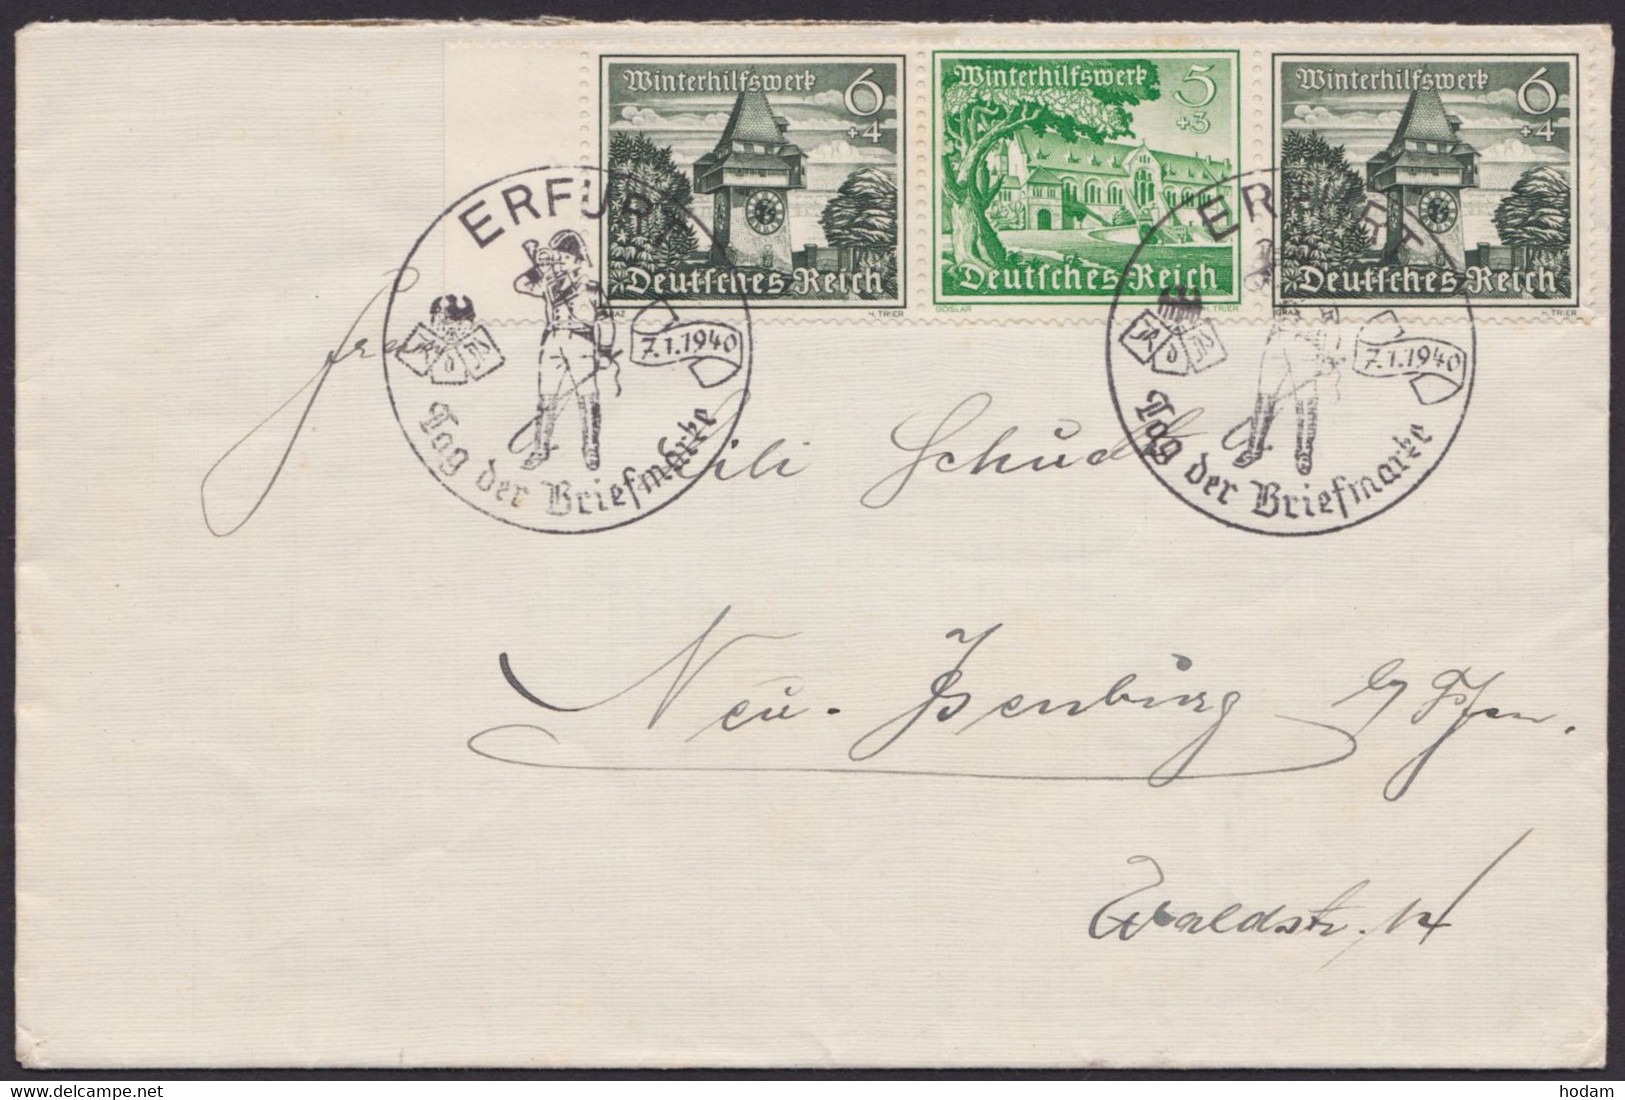 Winterhilfswerk 6 +4
Deutsches Reich
GRAZ H. TRIER
Winterhilfswerk 5 +3
Deutsches Reich
GOSLAR H. TRIER
Winterhilfswerk 6 +4
Deutsches Reich
GRAZ H. TRIER
ERFURT
7.1.1940
Tag der Briefmarke
ERFURT
7.1.1940
Tag der Briefmarke
Neu-Isenburg
Waldstr.
hodam